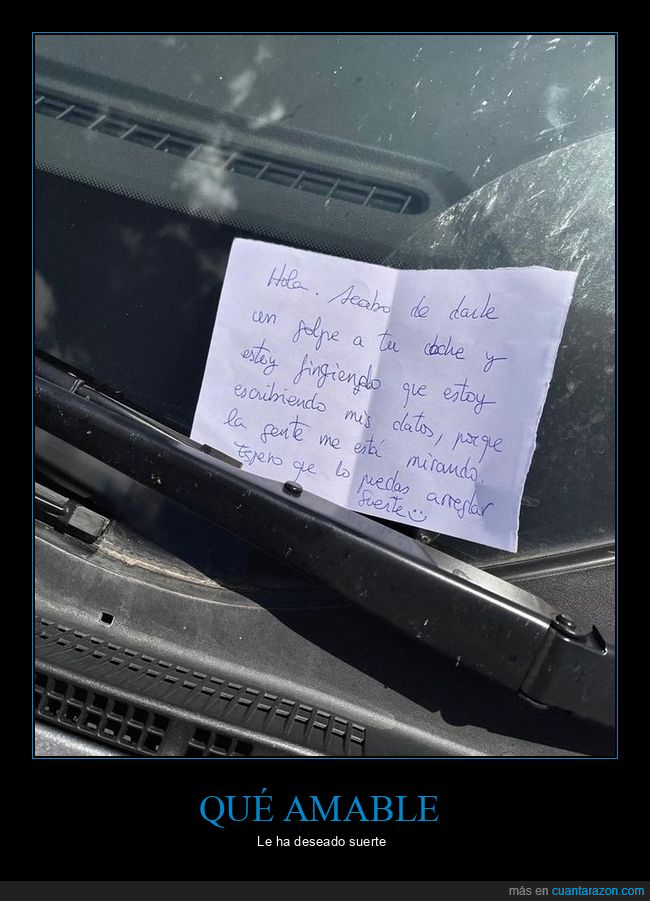 Hola. Acabo de darle
un golpe a tu coche y
estoy fingiendo que estoy
escribiendo mis datos, porque
la gente me está mirando.
Espero que lo puedas arreglar
Suerte
QUÉ AMABLE
Le ha deseado suerte
más en cuantarazon.com